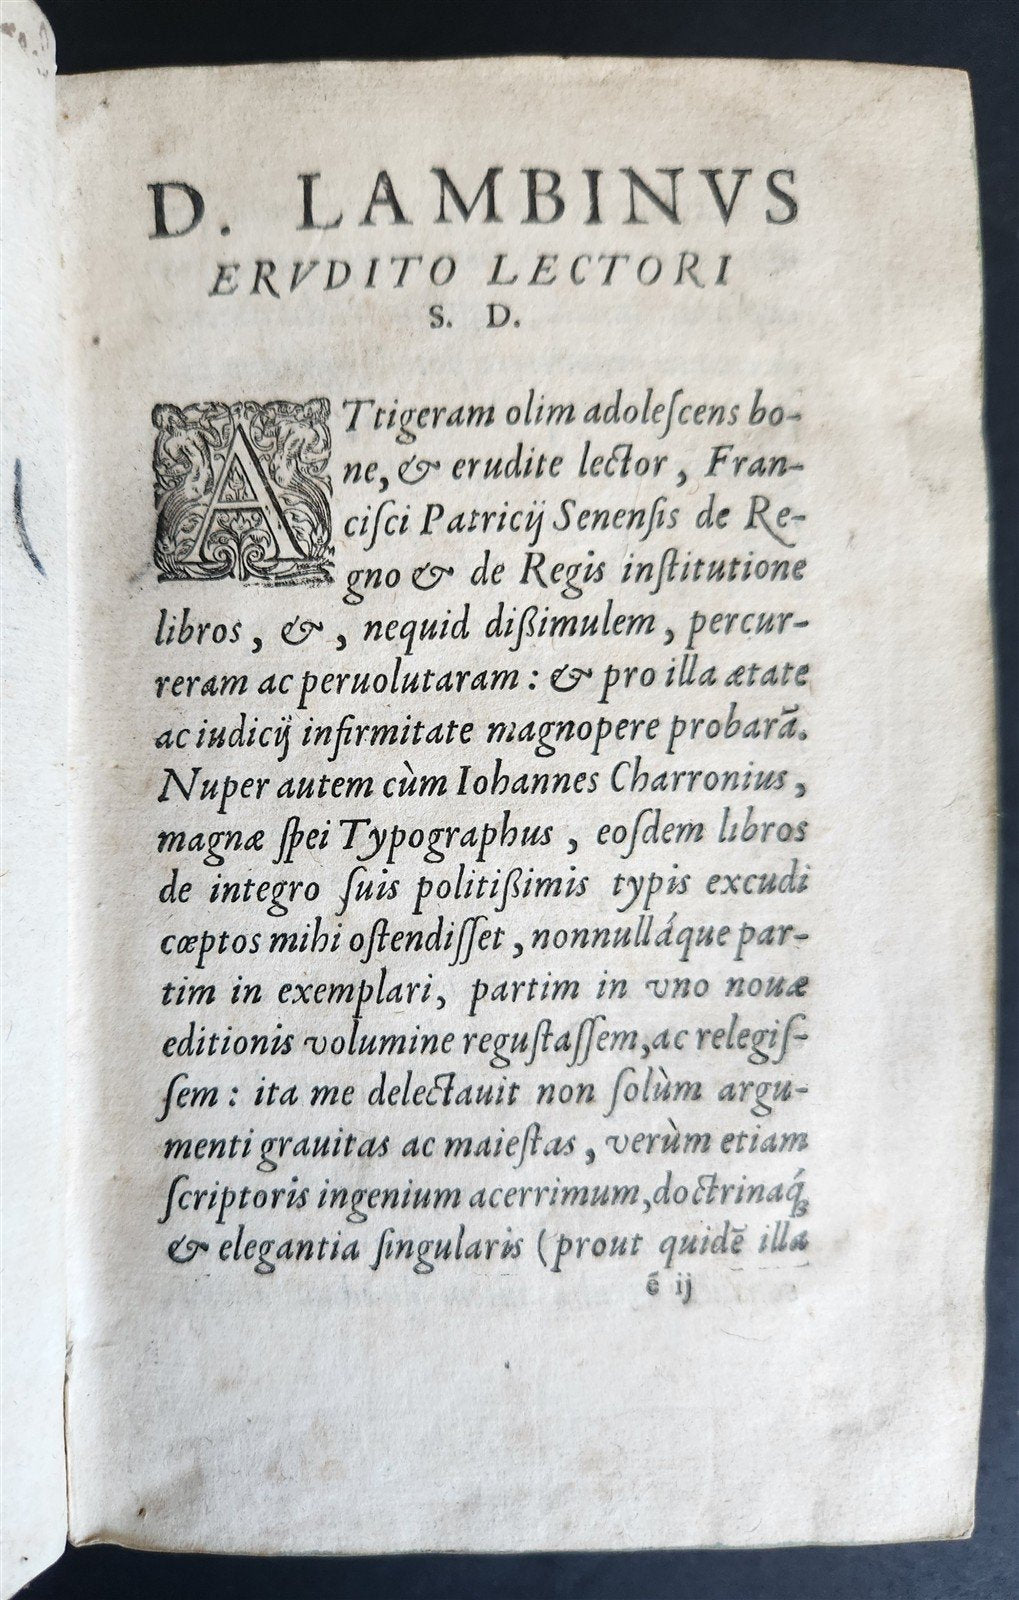 D. LAMBINVS
ERVDITO LECTORI
S. D.
ATtigeram olim adoleſcens bo-
ne, & erudite lector, Fran-
ciſci Patricij Senenſis de Re-
gno & de Regis inſtitutione
libros, &, nequid dißimulem, percur-
reram ac peruolutaram : & pro illa ætate
ac iudicij infirmitate magnopere probarā.
Nuper autem cùm Iohannes Charronius,
magnæ ſpei Typographus, eoſdem libros
de integro ſuis politißimis typis excudi
cœptos mihi oſtendiſſet, nonnulláque par-
tim in exemplari, partim in vno nouæ
editionis volumine reguſtaſſem, ac relegiſ-
ſem : ita me delectauit non ſolùm argu-
menti grauitas ac maieſtas, verùm etiam
ſcriptoris ingenium acerrimum, doctrinaq́;
& elegantia ſingularis (prout quidē illa
ē ij